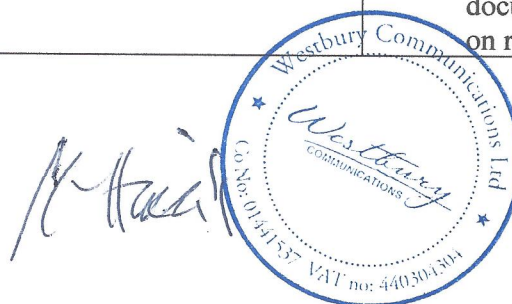 on r
Westbury Communications Ltd
Westbury
COMMUNICATIONS
Co No: 01441537 VAT no: 440304304